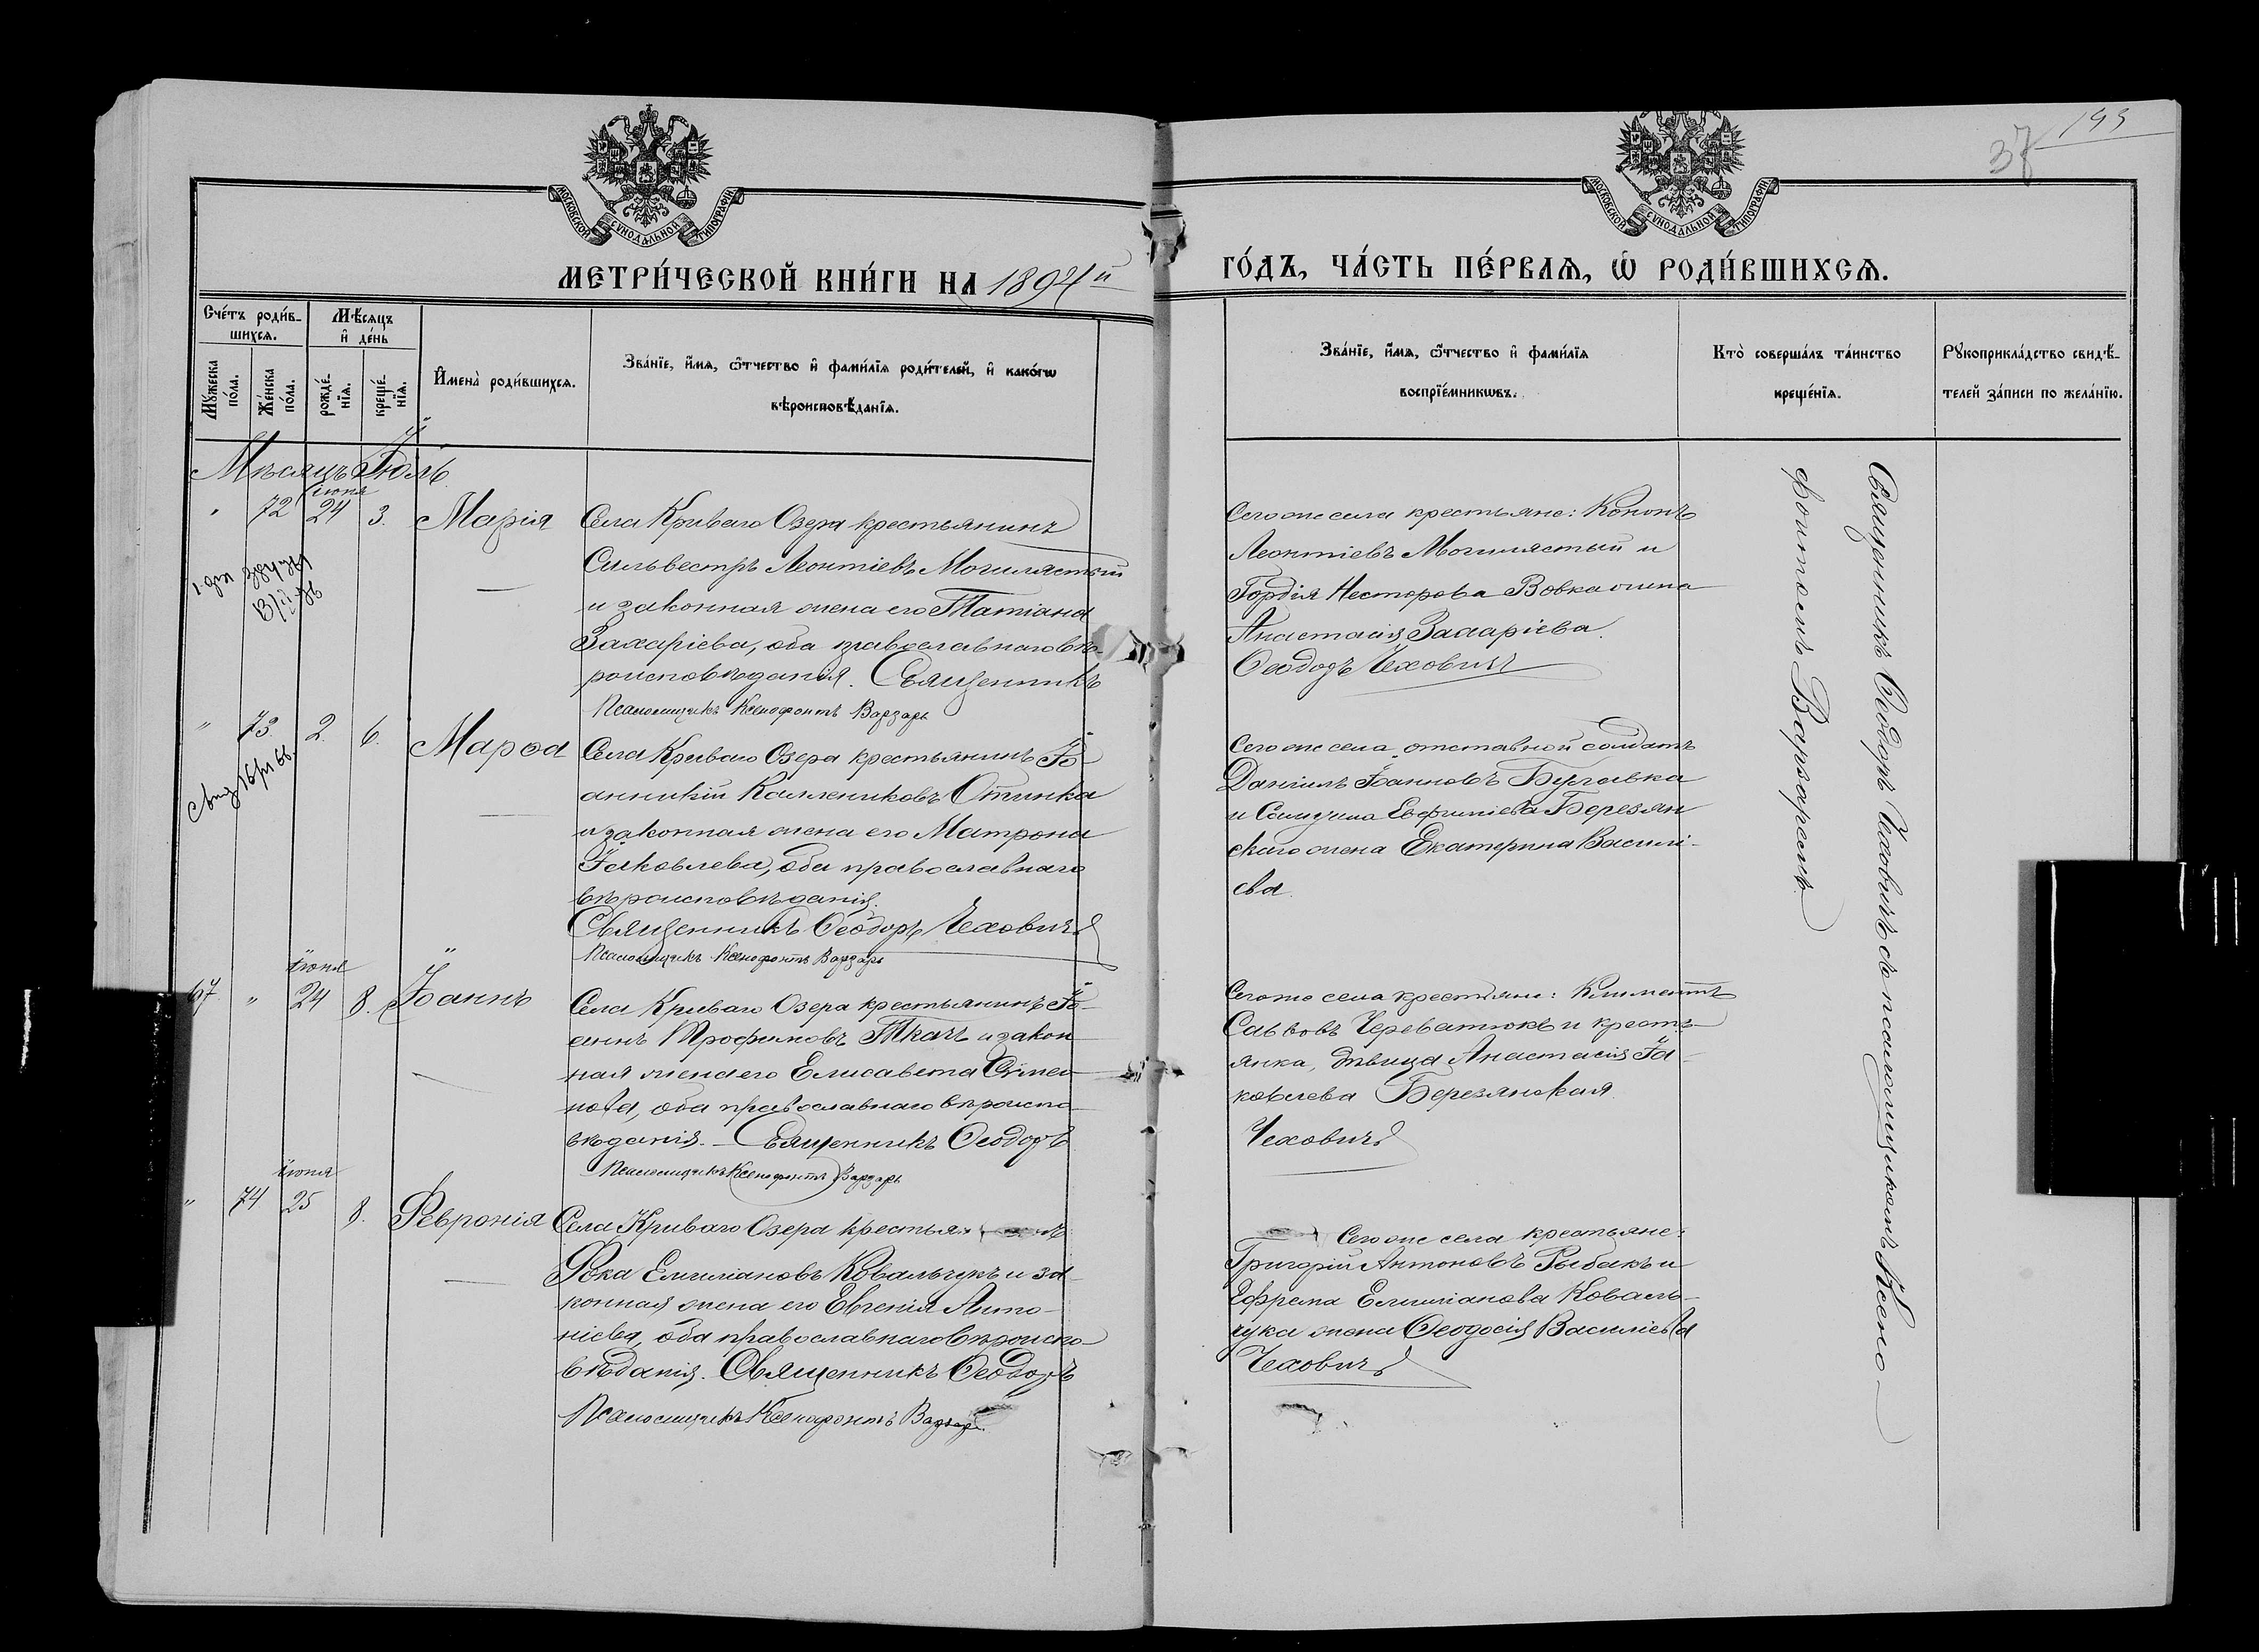 193
37
МОСКОВСКОЙ СѴНОДАЛЬНОЙ ТИПОГРАФІИ
МОСКОВСКОЙ СѴНОДАЛЬНОЙ ТИПОГРАФІИ
МЕТРИ́ЧЕСКОЙ КНИ́ГИ НА 1894й
ГО́ДЪ, ЧА́СТЬ ПЕ́РВАѦ, Ѡ҆ РОДИ́ВШИХСѦ.
Сче́тъ роди́в-
шихсѧ.
Мѣ́сѧцъ
и҆ де́нь
Мꙋ́жеска
по́ла.
Же́нска
по́ла.
рожде́-
нїѧ.
креще́-
нїѧ.
И҆мена̀ роди́вшихсѧ.
Зва́нїе, и҆́мѧ, ѻ҆́тчество и҆ фами́лїѧ роди́телей, и҆ како́гѡ
вѣроисповѣ́данїѧ.
Зва́нїе, и҆́мѧ, ѻ҆́тчество и҆ фами́лїѧ
воспрїе́мникѡвъ.
Кто̀ соверша́лъ та́инство
креще́нїѧ.
Рꙋкоприкла́дство свидѣ́-
телей за́писи по жела́нїю.
Мѣсяцъ Іюль
іюня
" 72 24 3. Марія
Села Криваго Озера крестьянинъ
Сильвестръ Леонтіевъ Могилястый
и законная жена его Татіана
Захаріева, оба православнаго вѣ-
роисповѣданія. Священникъ
Псаломщикъ Ксенофонтъ Варзарь
Сего же села крестьяне: Кононъ
Леонтіевъ Могилястый и
Гордія Несторова Вовка жена
Анастасія Захаріева.
Ѳеодоръ Чеховичъ
" 73 2. 6. Марѳа
Села Криваго Озера крестьянинъ Іо-
анникій Каллениковъ Отинка
и законная жена его Матрона
Іаковлева, оба православнаго
вѣроисповѣданія.
Священникъ Ѳеодоръ Чеховичъ
Псаломщикъ Ксенофонтъ Варзарь
Сего же села отставной солдатъ
Даніилъ Іоанновъ Булавка
и Евфиміева Березян
скаго жена Екатерина Василі-
ева.
іюня
67 " 24 8. Іоаннъ
Села Криваго Озера крестьянинъ Іо-
аннъ Трофимовъ Ткачъ и закон
ная жена его Елисавета Симео-
нова, оба православнаго вѣроиспо-
вѣданія. Священникъ Ѳеодоръ
Псаломщикъ Ксенофонтъ Варзарь
Сего же села крестьяне: Климентъ
Саввовъ Череватюкъ и кресть-
янка, дѣвица Анастасія Іа-
ковлева Березянская.
Чеховичъ
іюня
" 74 25 8. Февронія
Села Криваго Озера крестья
Фока Емиліановъ Ковальчукъ и за-
конная жена его Евгенія Анто-
ніева, оба православнаго вѣроиспо-
вѣданія. Священникъ Ѳеодоръ
Псаломщикъ Ксенофонтъ Варзарь
Сего же села крестьяне:
Григорій Антоновъ Рыбакъ и
Ефрема Емиліанова Коваль-
чука жена Ѳеодосія Василіева
Чеховичъ
Священникъ Ѳеодоръ Чеховичъ съ псаломщикомъ Ксено-
фонтомъ Варзаремъ.